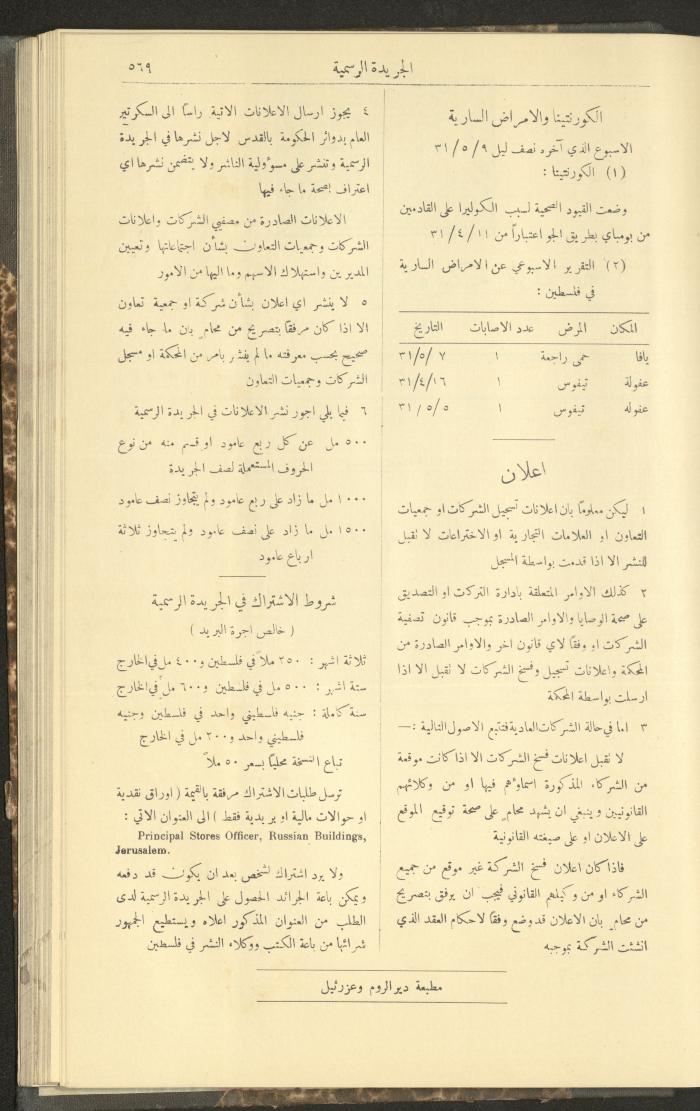 الجريدة الرسمية
٥٦٩
الكورنتينا والامراض السارية
الاسبوع الذي آخره نصف ليل ٩ /٥ /٣١
(١) الكورنتينا :
وضعت القيود الصحية لسبب الكوليرا على القادمين
من بومباي بطريق الجو اعتباراً من ١١ /٤ /٣١
(٢) التقرير الاسبوعي عن الامراض السارية
في فلسطين :
المكان المرض عدد الاصابات التاريخ
يافا حمى راجعة ١ ٧ /٥/ ٣١
عفولة تيفوس ١ ١٦/ ٤/ ٣١
عفوله تيفوس ١ ٥ /٥ /٣١
اعلان
١ ليكن معلوماً بان اعلانات تسجيل الشركات او جمعيات
التعاون او العلامات التجارية او الاختراعات لا تقبل
للنشر الا اذا قدمت بواسطة المسجل
٢ كذلك الاوامر المتعلقة بادارة التركات او التصديق
على صحة الوصايا والاوامر الصادرة بموجب قانون تصفية
الشركات او وفقاً لاي قانون اخر والاوامر الصادرة من
المحكمة واعلانات تسجيل وفسخ الشركات لا تقبل الا اذا
ارسلت بواسطة المحكمة
٣ اما في حالة الشركات العادية فتتبع الاصول التالية :—
لا تقبل اعلانات فسخ الشركات الا اذا كانت موقعة
من الشركاء المذكورة اسماؤهم فيها او من وكلائهم
القانونيين وينبغي ان يشهد محام على صحة توقيع الموقع
على الاعلان او على صيغته القانونية
فاذا كان اعلان فسخ الشركة غير موقع من جميع
الشركاء او من وكيلهم القانوني فيجب ان يرفق بتصريح
من محام بان الاعلان قد وضع وفقاً لاحكام العقد الذي
انشئت الشركة بموجبه
٤ يجوز ارسال الاعلانات الاتية راساً الى السكرتير
العام بدوائر الحكومة بالقدس لاجل نشرها في الجريدة
الرسمية وتنشر على مسؤولية الناشر ولا يتضمن نشرها اي
اعتراف بصحة ما جاء فيها
الاعلانات الصادرة من مصفيي الشركات واعلانات
الشركات وجمعيات التعاون بشأن اجتماعاتها وتعيين
المديرين واستهلاك الاسهم وما اليها من الامور
٥ لا ينشر اي اعلان بشأن شركة او جمعية تعاون
الا اذا كان مرفقاً بتصريح من محام بان ما جاء فيه
صحيح بحسب معرفته ما لم ينشر بامر من المحكمة او مسجل
الشركات وجمعيات التعاون
٦ فيما يلي اجور نشر الاعلانات في الجريدة الرسمية
٥٠٠ مل عن كل ربع عامود او قسم منه من نوع
الحروف المستعملة لصف الجريدة
١٠٠٠ مل ما زاد على ربع عامود ولم يتجاوز نصف عامود
١٥٠٠ مل ما زاد على نصف عامود ولم يتجاوز ثلاثة
ارباع عامود
شروط الاشتراك في الجريدة الرسمية
( خالص اجرة البريد )
ثلاثة اشهر : ٢٥٠ ملاً في فلسطين و٤٠٠ مل في الخارج
ستة اشهر : ٥٠٠ مل في فلسطين و٦٠٠ مل في الخارج
سنة كاملة : جنيه فلسطيني واحد في فلسطين وجنيه
فلسطيني واحد و٢٠٠ مل في الخارج
تباع النسخة محلياً بسعر ٥٠ ملاً
ترسل طلبات الاشتراك مرفقة بالقيمة ( اوراق نقدية
او حوالات مالية او بريدية فقط ) الى العنوان الاتي :
Principal Stores Officer, Russian Buildings,
Jerusalem.
ولا يرد اشتراك لشخص بعد ان يكون قد دفعه
ويمكن باعة الجرائد الحصول على الجريدة الرسمية لدى
الطلب من العنوان المذكور اعلاه ويستطيع الجمهور
شرائها من باعة الكتب ووكلاء النشر في فلسطين
مطبعة دير الروم وعزرئيل